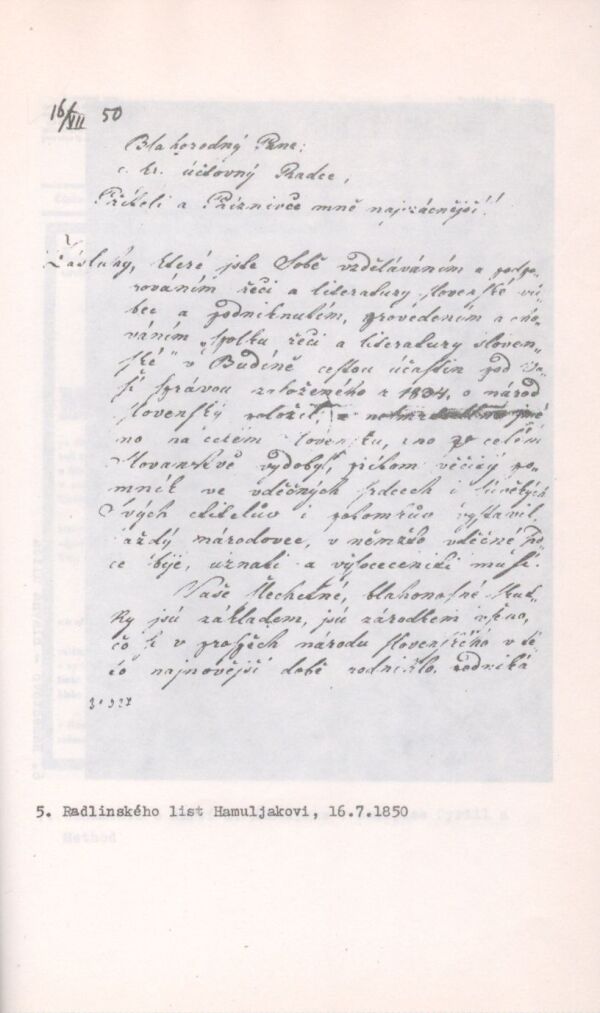 16/VII 50
Blahorodný Pane!
c. kr. účtovný Radce,
Příteli a Příznivče mně najvzácnější!
Zásluhy, které jste Sobě vzděláváním a podpo-
rováním řeči a literatury slovenské vů-
bec a podniknutím, provedením a cho-
váním „Spolku řeči a literatury sloven-
ské" v Budíně cestou účastin pod Va-
ší správou založeného r. 1834, o národ
slovenský
no na celém Slovensku, ano celém
Slovanstvě vydobyl, jichom věčitý po-
mník ve vděčných srdcech i
Svých ctitelův i potomkův vystavil,
každý národovec, v němžto vděčné
ce bije, uznati a vysoceceniti musí.
Vaše šlechetné, blahonosné skut-
ky jsú základem, jsú zárodkem všeho,
čo k v prospěch národu slovenského v té-
to najnovější době vzniklo, vzniká
5. Radlinského list Hamuljakovi, 16.7.1850